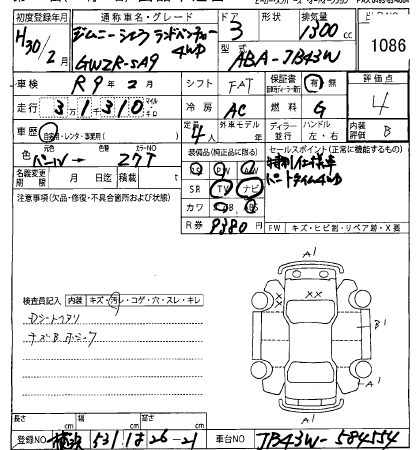 初度登録年月 通称車名・グレード ドア 形状 排気量
H30/2月 ジムニーシエラ ランドベンチャー 4WD 3 1300cc 1086
GWZR-SA9 型式 ABA-JB43W
車検 R9年2月 シフト FAT 保証書 有 無 評価点
走行 31310 マイル キロ 冷房 AC 燃料 G 4
車歴 自家用・レンタ・事業用( ) 定員 4人 外車モデル 年 ディーラー 並行 ハンドル 左・右 内装評価 B
色 パール → 色替 カラーNO Z7T 装備品(純正品に限る) セールスポイント(正常に機能するもの)
名義変更期限 月 日迄 積載 t PS PW AW 特別仕様車
SR TV ナビ パートタイム4WD
注意事項(欠品・修復・不具合箇所および状態) カワ AB
R券 9380円 FW キズ・ヒビ割・リペア跡・X要
A1
XX XX
検査員記入 内装 キズ・汚レ・コゲ・穴・スレ・キレ
Dシートヘタリ B1
A1
A1
長さ cm 幅 cm 高さ cm
登録NO 横浜 531 は 26-21 車台NO JB43W-584554